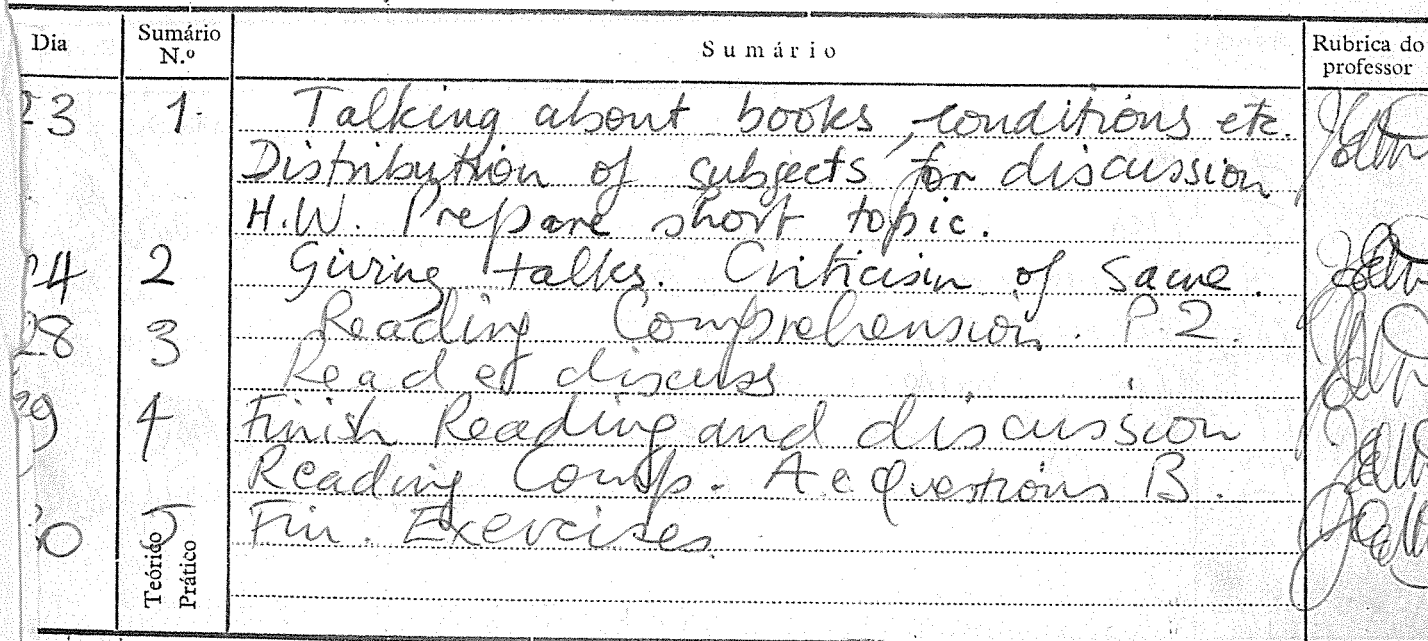 Dia Sumário N.º Sumário Rubrica do professor
23 1. Talking about books, conditions etc.
Distribution of subjects for discussion
H.W. Prepare short topic.
24 2 Giving talks. Criticism of same.
28 3 Reading Comprehension. P.2.
Read et discuss
29 4 Finish Reading and discussion
Reading Comp. A e Questions B.
30 5 Fin. Exercises.
Teórico Prático